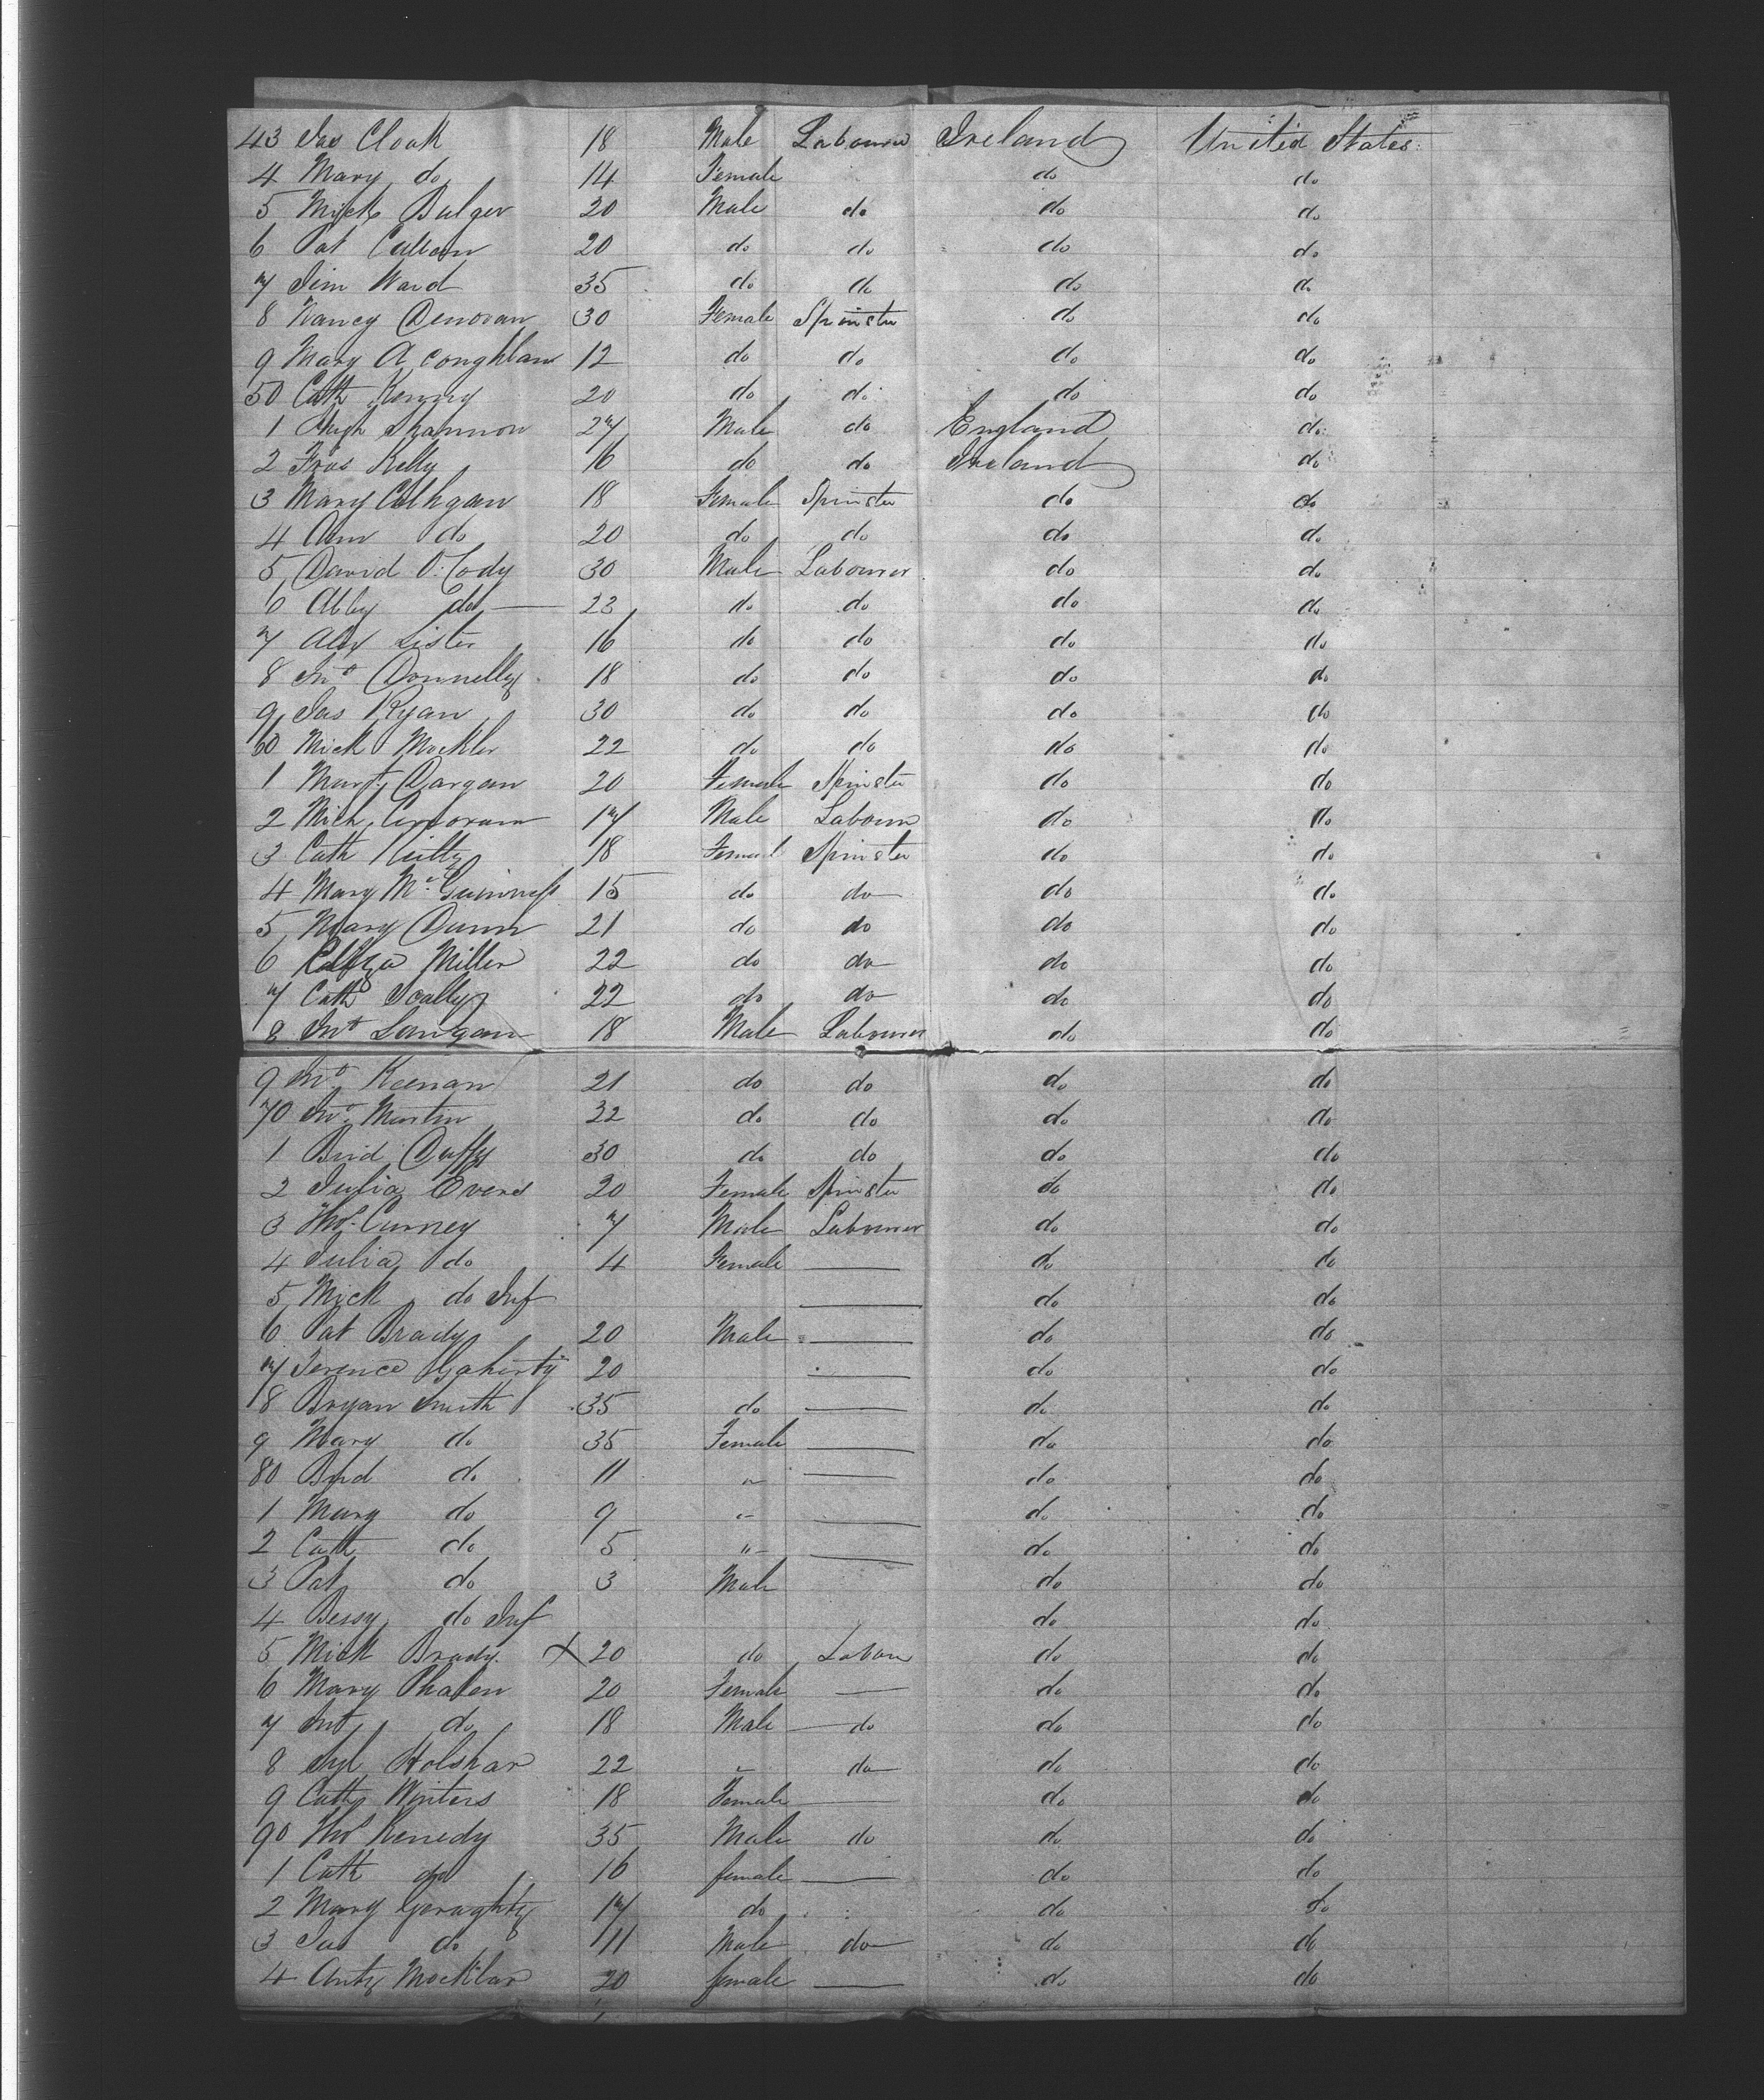 43 Jas Cloak 18 Male Labourer Ireland United States
4 Mary do 14 Female do do
5 Mick Bulger 20 Male do do do
6 Pat 20 do do do do
7 Jim Ward 35 do do do do
8 Nancy Donovan 30 Female Spinster do do
9 Mary A Coughlan 12 do do do do
50 Cath Kenny 20 do do do do
1 Hugh Shannon 27 Male do England do
2 Fras Kelly 16 do do Ireland do
3 Mary 18 Female Spinster do do
4 Ann do 20 do do do do
5 David O. Cody 30 Male Labourer do do
6 Abby do 23 do do do do
7 Alex Lister 16 do do do do
8 Jno Donnelly 18 do do do do
9 Jas Ryan 30 do do do do
60 Mick Mockler 22 do do do do
1 Margt Dargan 20 Female Spinster do do
2 Mich Corcoran 17 Male Labourer do do
3 Cath Reilly 18 Female Spinster do do
4 Mary McGuinness 15 do do do do
5 Mary Dunn 21 do do do do
6 Eliza Miller 22 do do do do
7 Cath Scally 22 do do do do
8 Jno Langan 18 Male Labourer do do
9 Jno Keenan 21 do do do do
70 Jno Martin 32 do do do do
1 Brid Duffy 30 do do do do
2 Julia Overs 20 Female Spinster do do
3 Thos Curney 7 Male Labourer do do
4 Julia do 4 Female — do do
5 Mick do Inf — do do
6 Pat Brady 20 Male — do do
7 Terence Gaherty 20 — do do
8 Bryan Smith 35 do — do do
9 Mary do 35 Female — do do
80 Brid do 11 " — do do
1 Mary do 9 " — do do
2 Cath do 5 " — do do
3 Pat do 3 Male do do
4 Bessy do Inf do do
5 Mick Brady X 20 do Labour do do
6 Mary Phalen 20 Female — do do
7 Jno do 18 Male do do do
8 Syl Holohan 22 " do do do
9 Cath Winters 18 Female — do do
90 Thos Kenedy 35 Male do do do
1 Cath do 16 female — do do
2 Mary Geraghty 17 do do do
3 Jas do 11 Male do do do
4 Anty Mocklar 20 female — do do